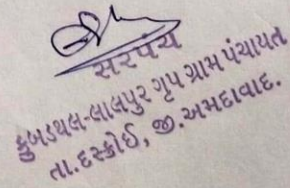 સરપંચ
કુબડથલ-લાલપુર ગૃપ ગ્રામ પંચાયત
તા.દસ્ક્રોઈ, જી.અમદાવાદ.